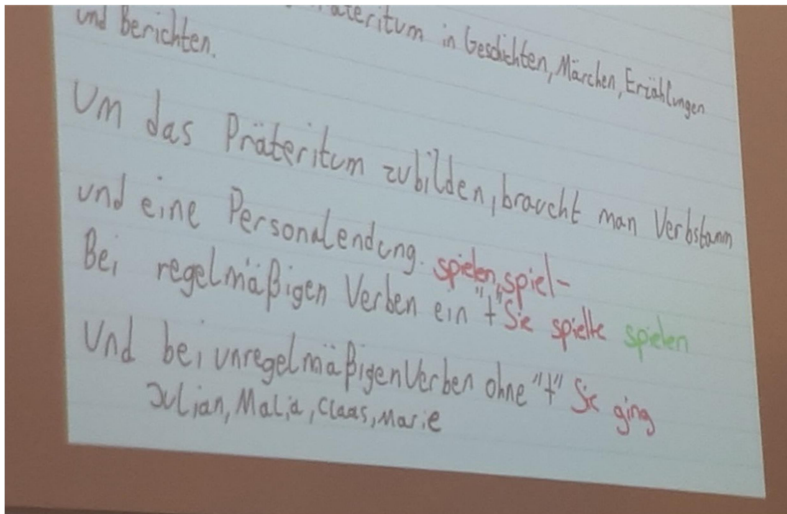 Präteritum in Geschichten, Märchen, Erzählungen
und Berichten.
Um das Präteritum zubilden, braucht man Verbstamm
und eine Personalendung. spielen, spiel-
Bei regelmäßigen Verben ein "t" Sie spielte spielen
Und bei unregelmäßigen Verben ohne "t" Sie ging
Julian, Malia, Claas, Marie